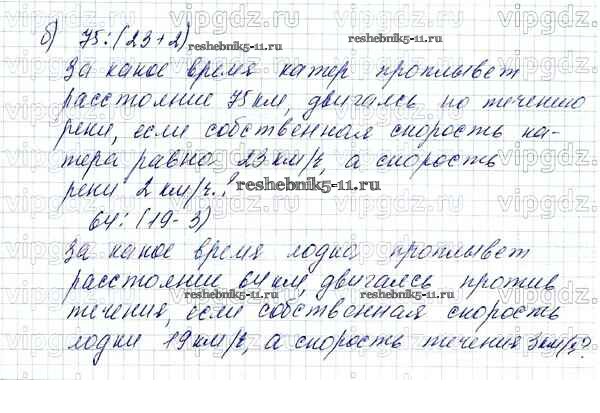 б) 75:(23+2)
За какое время катер проплывет
расстояние 75 км, двигаясь по течению
реки, если собственная скорость ка-
тера равна 23 км/ч, а скорость
реки 2 км/ч.?
64: (19-3)
За какое время лодка проплывет
расстоянии 64 км, двигаясь против
течения, если собственная скорость
лодки 19 км/ч, а скорость течения 3 км/ч?
reshebnik5-11.ru
reshebnik5-11.ru
reshebnik5-11.ru
reshebnik5-11.ru
vipgdz.